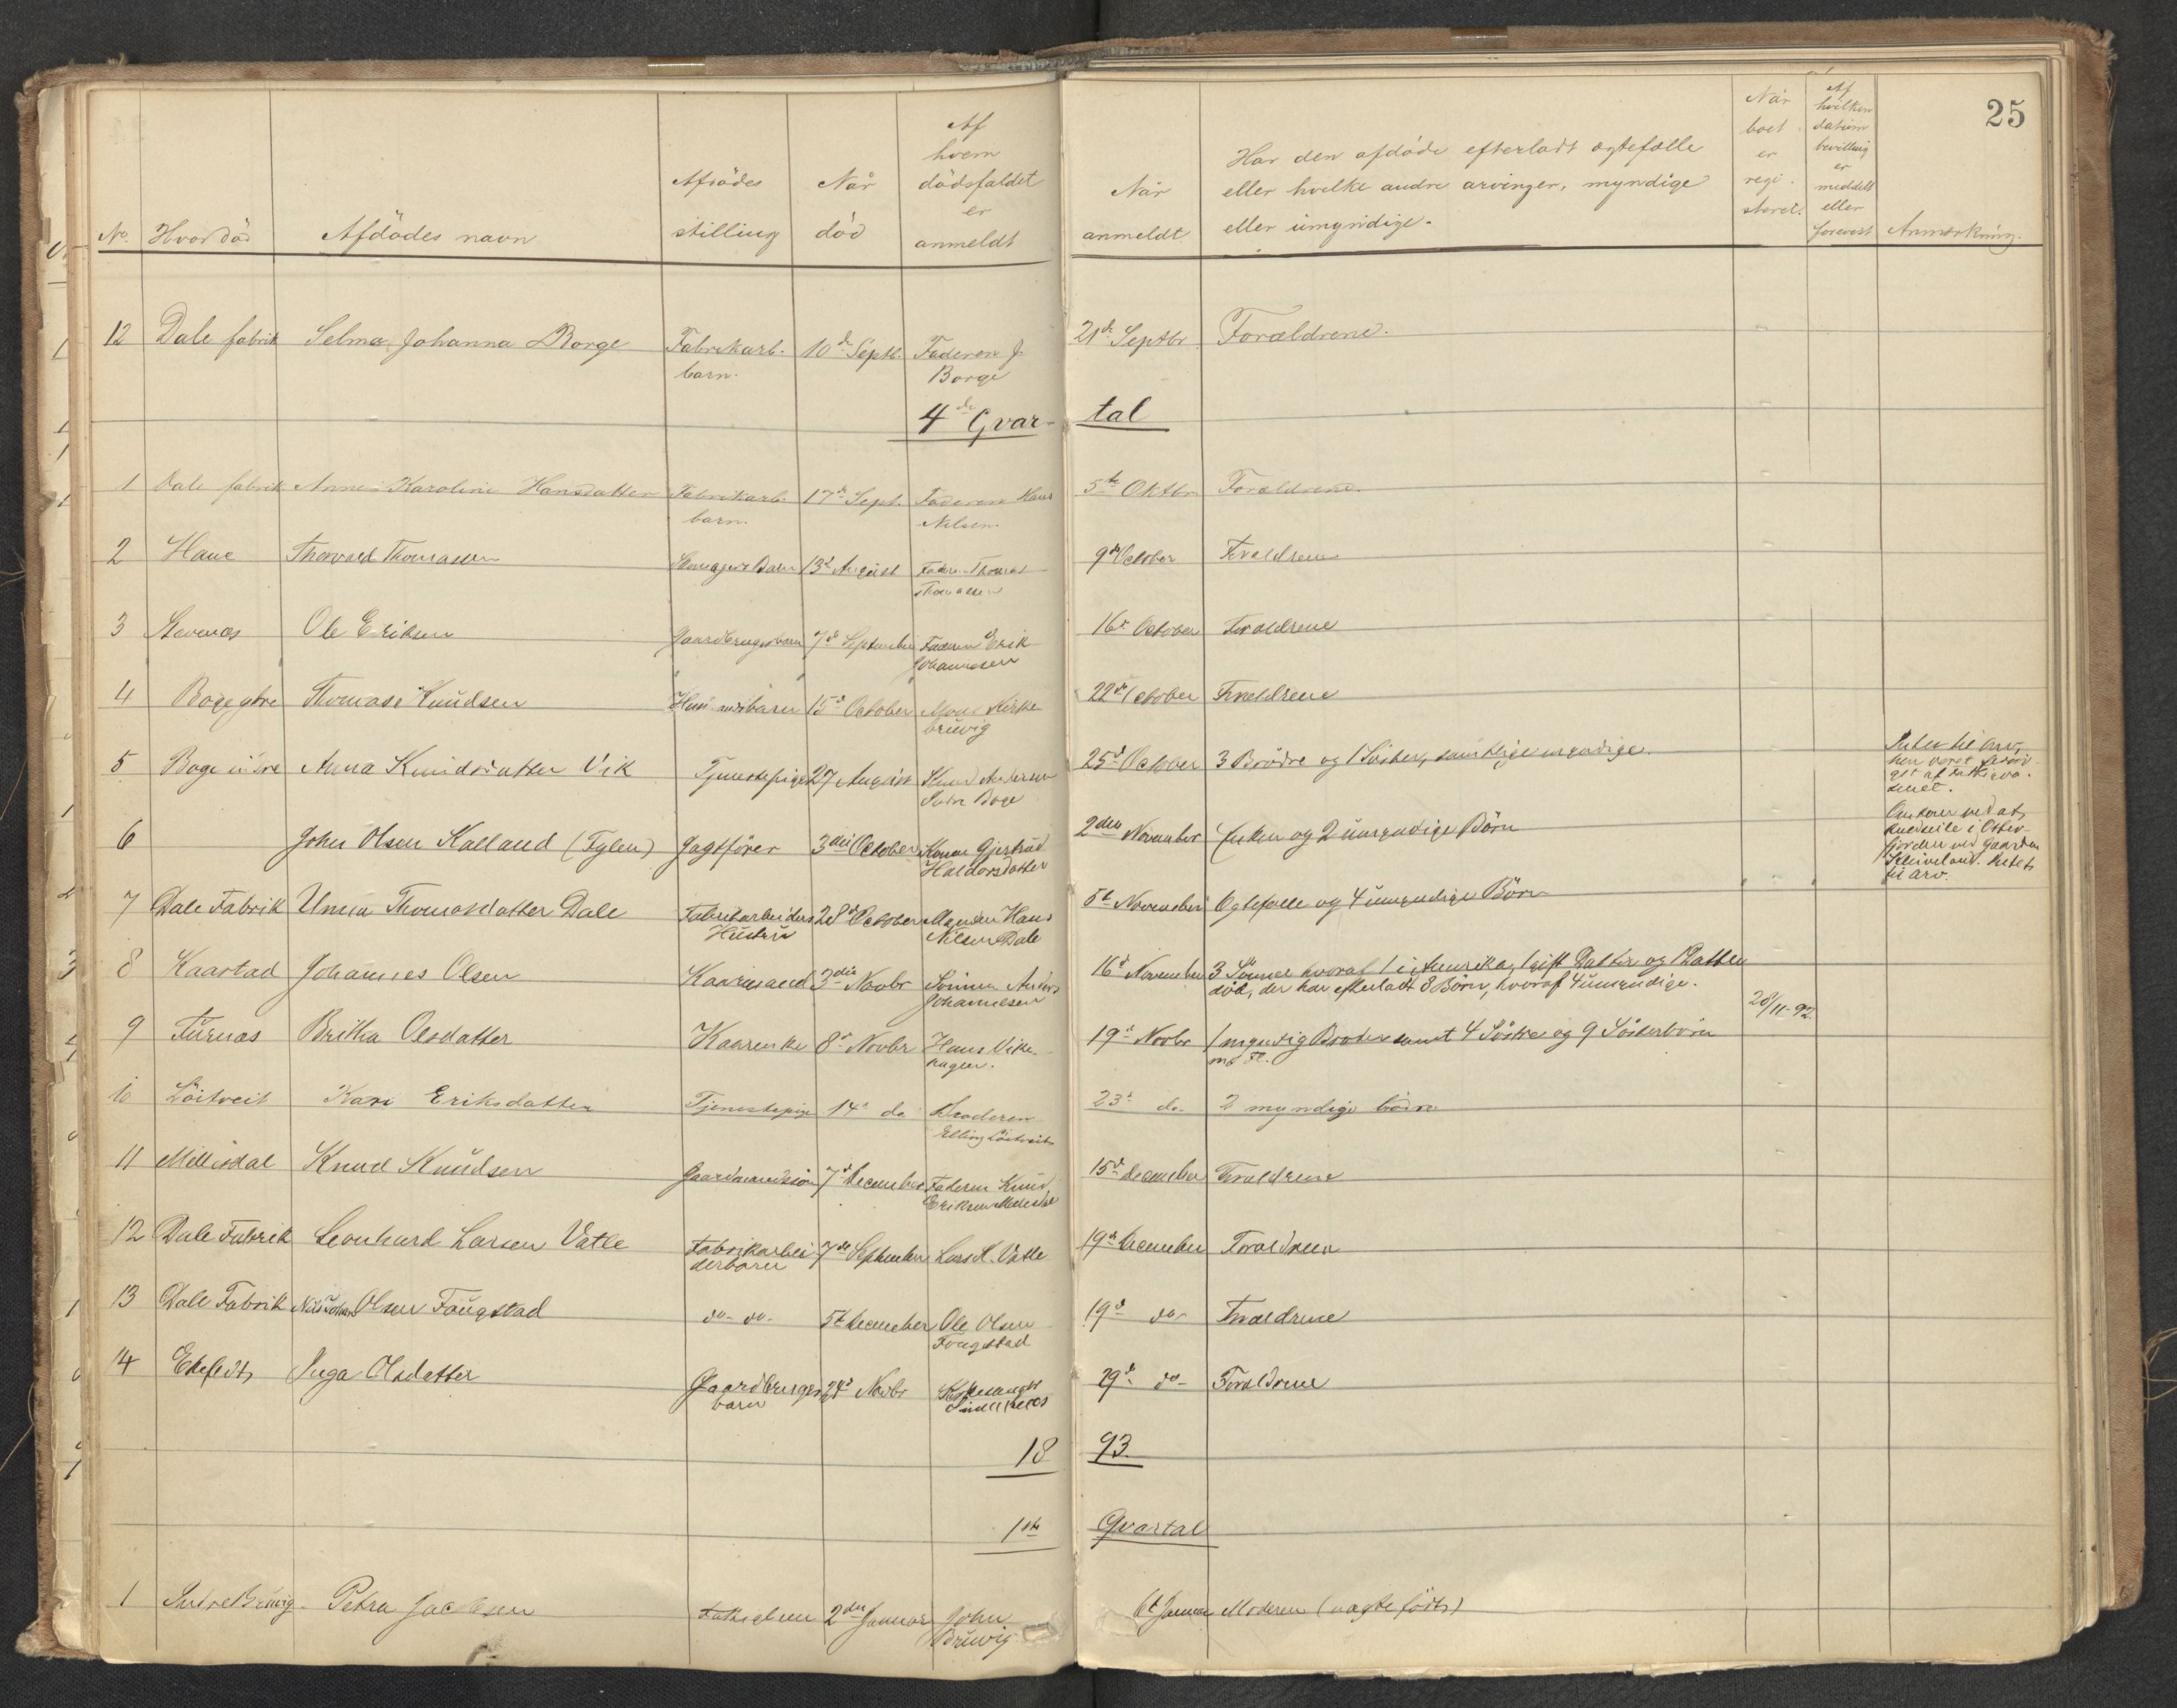 25
No. Hvor död Afdödes navn Afdödes stilling Når död Af hvem dödsfaldet er anmeldt Når anmeldt Har den afdöde efterladt ægtefælle eller hvilke andre arvinger, myndige eller umyndige. Når boet er registeret. Af hvilken datum bevilling er meddelt eller forevist Anmærkning.
12 Dale fabrik Selma Johanna Borge Fabrikarb. barn. 10de Septb. Faderen J. Borge 21de Septbr Forældrene.
4de Qvartal
1 Dale fabrik Anne Karoline Hansdatter Fabrikarb. barn. 17de Sept. Faderen Hans Nilsen. 5te Oktbr Forældrene.
2 Hane Thorvald Thomassen Skomagers Barn 13d August Faderen Thomas Thomassen 9de October Forældrene
3 Stevenæs Ole Eriksen Gaardbrugerbarn 7de September Faderen Erik Johannesen 16d October Forældrene
4 Boge ytre Thomas Knudsen Husmandsbarn 15d October Mons Kirkebruvig 22de October Forældrene
5 Boge indre Anna Knudsdatter Vik Tjenestepige 27 August Knud Andersen Indre Boge 25d October 3 Brödre og 1 Söster, samtlige myndige. Intet til arv, hen været forsörget af Fattigvæsenet.
6 John Olsen Kalland (Fylen) Jagtförer 3die October Konen Gjertrud Haldorsdatter 2den November Enken og 2 umyndige Börn Omkom ved at kuldseile i Osterfjorden ved Gaarden Kleiveland. Intet til arv.
7 Dale Fabrik Unna Thomasdatter Dale Fabrikarbeiders Hustru 28d October Manden Hans Nilsen Dale 5te November Ægtefælle og 4 umyndige Börn
8 Kaartad Johannes Olsen Kaarmand 3die Novbr Sönnen Anders Johannesen 16d November 3 Sönner hvoraf 1 i Amerika, 1 gift Datter og 1 Datter död, der har efterladt 8 Börn, hvoraf 4 umyndige.
9 Furnæs Britha Olsdatter Kaarenke 8d Novbr Hans Vikehagen. 19d Novbr 1 myndig Broder samt 4 Söstre og 9 Sösterbörn 28/11-92.
10 Löitveit Kari Eriksdatter Tjenestepige 14d do Broderen Elling Löitveit 23d do. 2 myndige börn
11 Millesdal Knud Knudsen Gaardmandssön 7d December Faderen Knud Eriksen Millesdal 15d December Forældrene
12 Dale Fabrik Leonhard Larsen Vatle Fabrikarbeiderbarn 7de September Lars K. Vatle 19de December Forældrene
13 Dale Fabrik Nils Johan Olsen Fougstad do- do- 5te December Ole Olsen Fougstad 19d do- Forældrene
14 Ekefedt, Inga Olsdatter Gaardbrugerbarn 24d Novbr Kirkesanger 29d do- Forældrene
1893.
1ste Qvartal
1 Indre Bruvig Petra Jacobsen Fattiglem 2den Januar John Bruvig 6te Januar Moderen (uægte född)